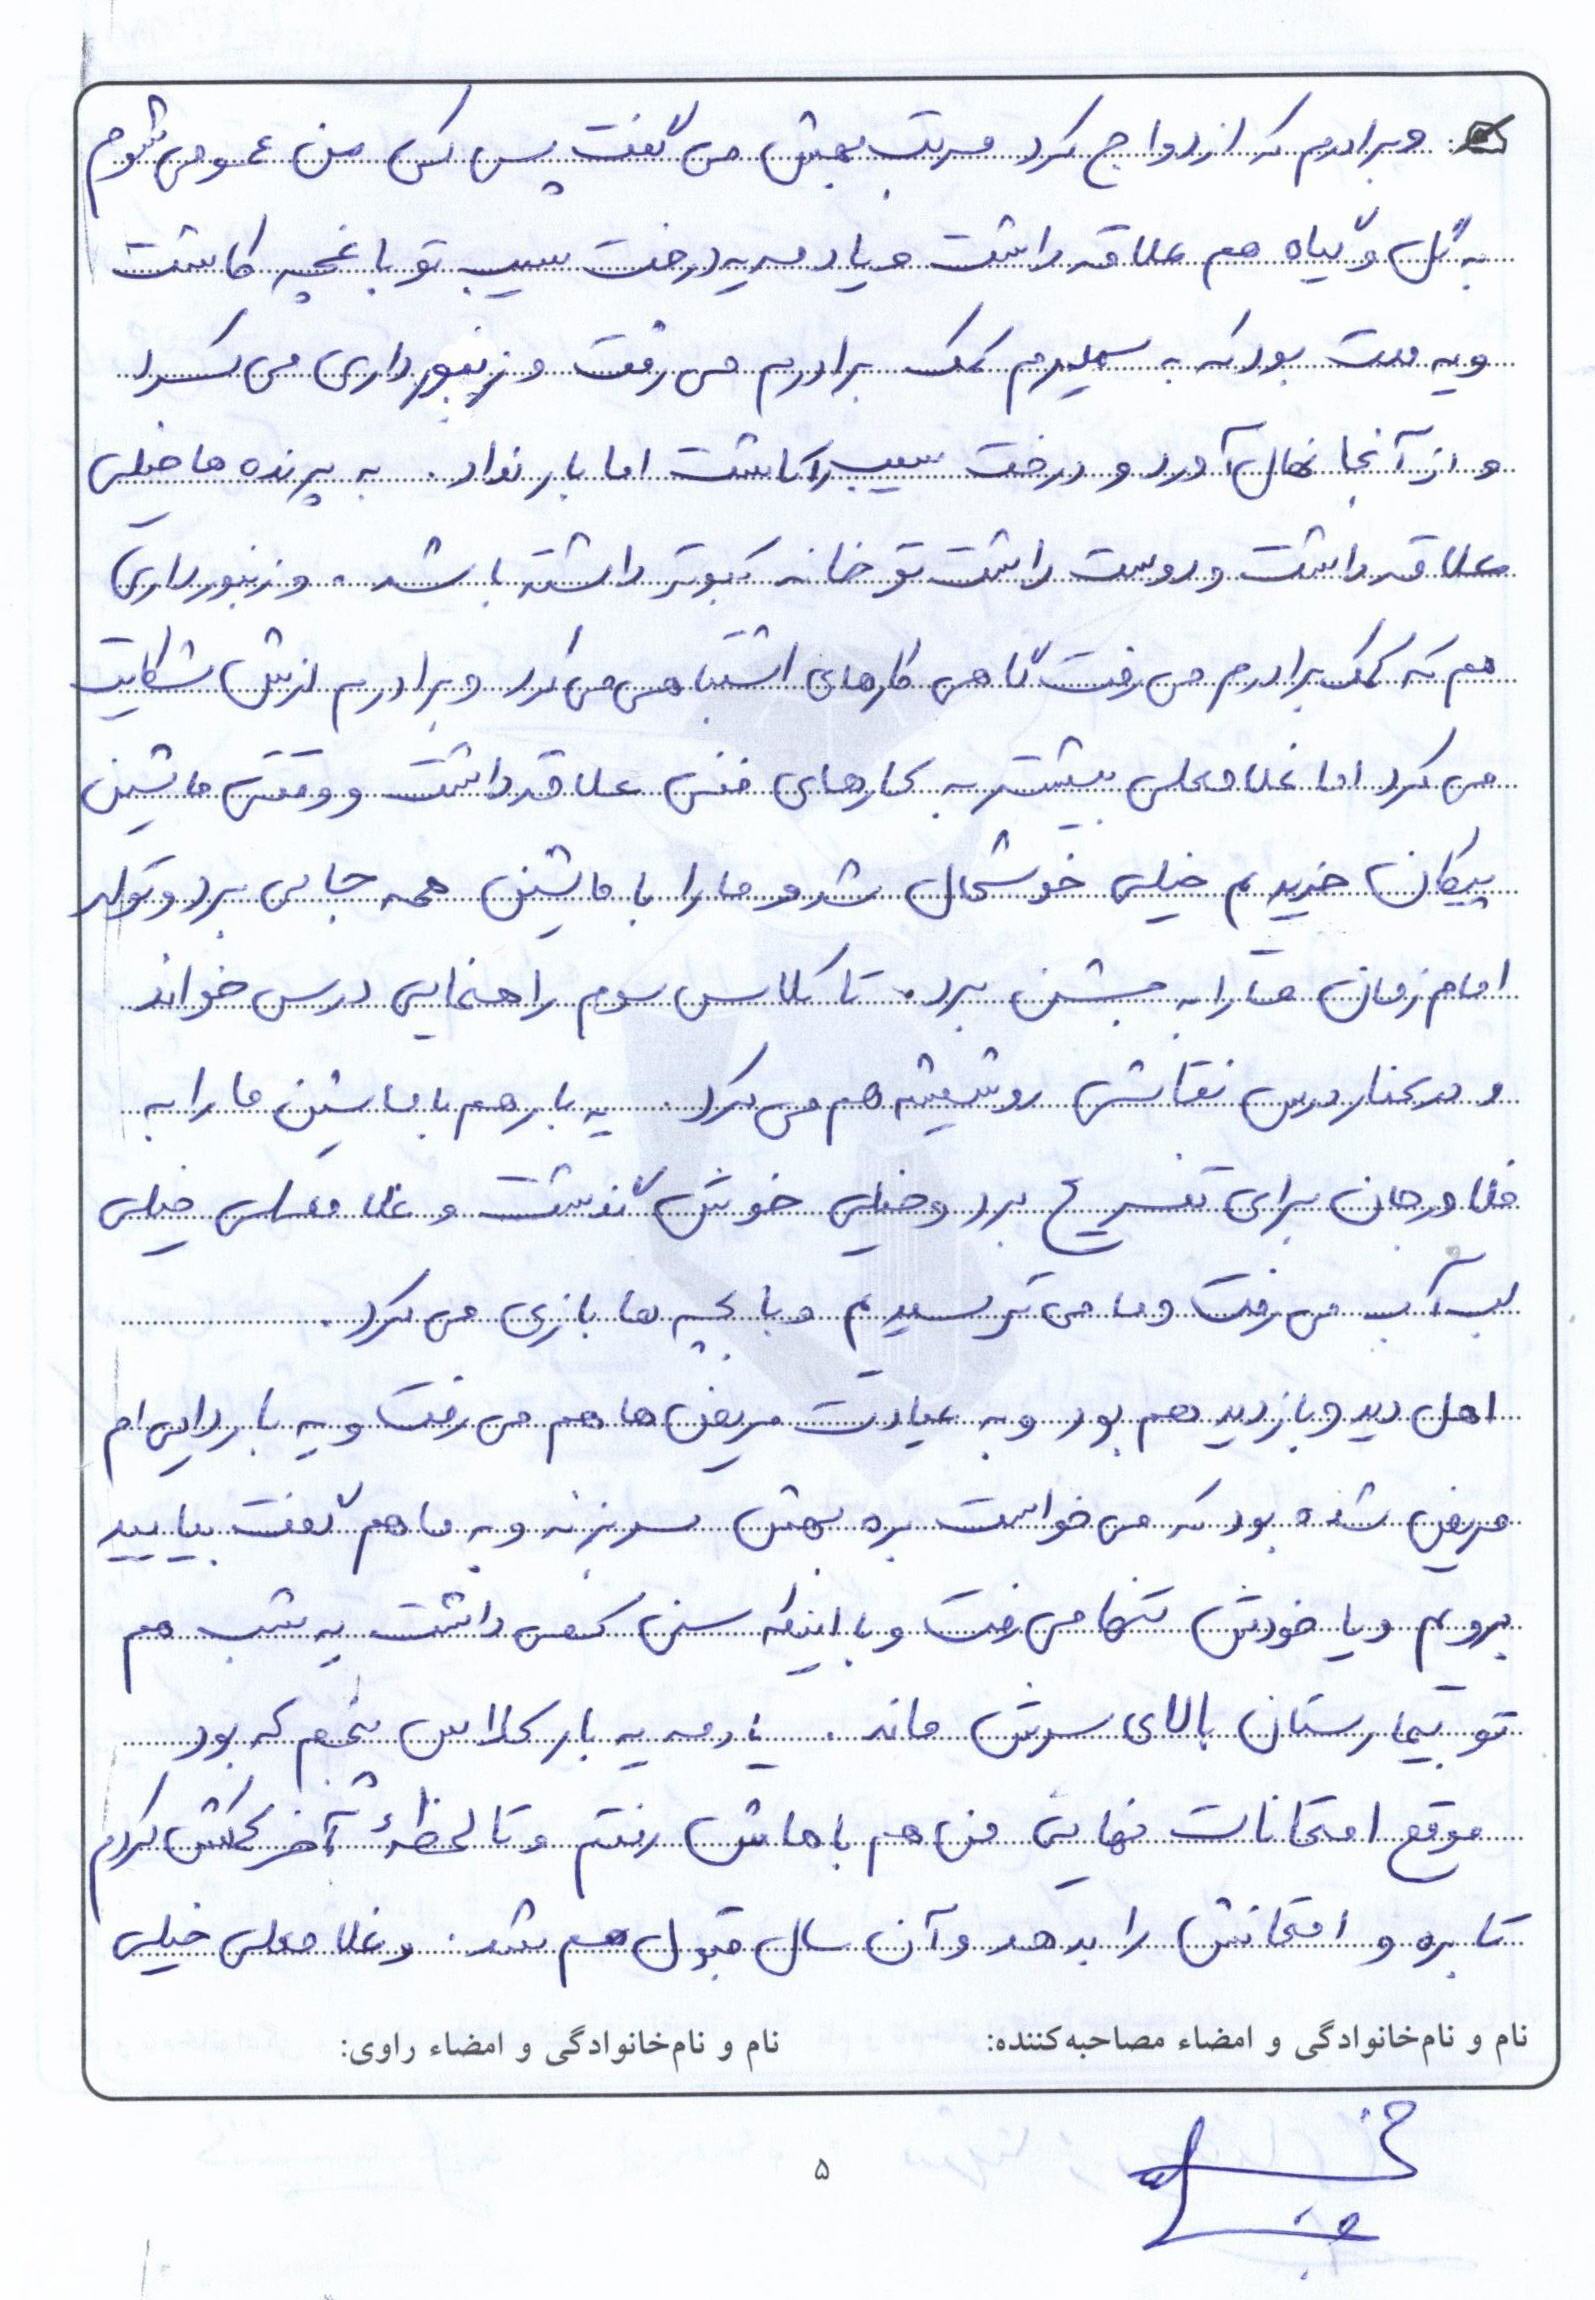 و برادرم که ازدواج کرد مرتب بهش می گفت پس کی من عمو می شوم
به گل و گیاه هم علاقه داشت و یادمه یه درخت سیب تو باغچه کاشت
و یه مدت بود که به سمیرم کمک برادرم می رفت و زنبور داری می کرد
و از آنجا نهال آورد و درخت سیب را کاشت اما بار نداد. به پرنده ها خیلی
علاقه داشت و دوست داشت تو خانه کبوتر داشته باشد. و زنبورداری
هم که کمک برادرم می رفت گاهی کارهای اشتباهی می کرد و برادرم ازش شکایت
می کرد اما غلامعلی بیشتر به کارهای فنی علاقه داشت و وقتی ماشین
پیکان خریدیم خیلی خوشحال شد و ما را با ماشین همه جا می برد و تولد
امام زمان ما را به جشن برد. تا کلاس سوم راهنمایی درس خواند
و در کنار درس نقاشی رو شیشه هم می کرد. یه بار هم با ماشین ما را به
فلاورجان برای تفریح برد و خیلی خوش گذشت و غلامعلی خیلی
لب آب می رفت و ما می ترسیدیم و با بچه ها بازی می کرد.
اهل دید و بازدید هم بود و به عیادت مریض ها هم می رفت و یه بار دایی ام
مریض شده بود که می خواست بره بهش سر بزنه و به ما هم گفت بیایید
برویم و یا خودش تنها می رفت و با اینکه سن کمی داشت یه شب هم
تو بیمارستان بالای سرش ماند. یادمه یه بار کلاس پنجم که بود
موقع امتحانات نهایی من هم باهاش رفتم و تا لحظهٔ آخر کمکش کردم
تا بره و امتحانش را بدهد و آن سال قبول هم شد. و غلامعلی خیلی
نام و نام‌خانوادگی و امضاء مصاحبه‌کننده: نام و نام‌خانوادگی و امضاء راوی:
۵